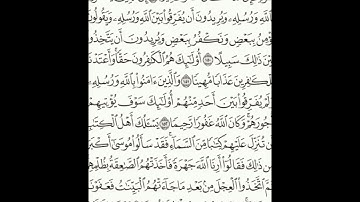 ٱللَّهِ وَرُسُلِهِۦ وَيُرِيدُونَ أَن يُفَرِّقُوا۟ بَيْنَ ٱللَّهِ وَرُسُلِهِۦ وَيَقُولُونَ
ؤْمِنُ بِبَعْضٍ وَنَكْفُرُ بِبَعْضٍ وَيُرِيدُونَ أَن يَتَّخِذُوا۟
يْنَ ذَٰلِكَ سَبِيلًا ١٥٠ أُو۟لَٰٓئِكَ هُمُ ٱلْكَٰفِرُونَ حَقًّا وَأَعْتَدْ
كَٰفِرِينَ عَذَابًا مُّهِينًا ١٥١ وَٱلَّذِينَ ءَامَنُوا۟ بِٱللَّهِ وَرُسُلِهِۦ
لَمْ يُفَرِّقُوا۟ بَيْنَ أَحَدٍ مِّنْهُمْ أُو۟لَٰٓئِكَ سَوْفَ يُؤْتِيهِمْ
جُورَهُمْ وَكَانَ ٱللَّهُ غَفُورًا رَّحِيمًا ١٥٢ يَسْـَٔلُكَ أَهْلُ ٱلْكِتَٰ
ن تُنَزِّلَ عَلَيْهِمْ كِتَٰبًا مِّنَ ٱلسَّمَآءِ فَقَدْ سَأَلُوا۟ مُوسَىٰٓ أَكْبَ
ن ذَٰلِكَ فَقَالُوٓا۟ أَرِنَا ٱللَّهَ جَهْرَةً فَأَخَذَتْهُمُ ٱلصَّٰعِقَةُ بِظُلْمِهِ
مَّ ٱتَّخَذُوا۟ ٱلْعِجْلَ مِنۢ بَعْدِ مَا جَآءَتْهُمُ ٱلْبَيِّنَٰتُ فَعَفَوْنَ